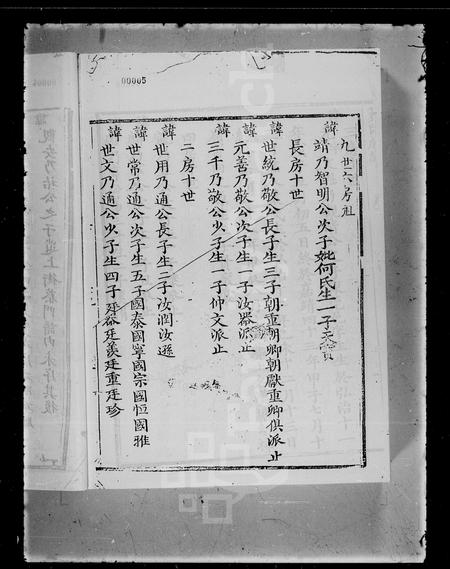 00005
九世六房祖
諱靖乃智明公次子妣何氏生一子天寳
長房十世
諱世統乃敬公長子生三子朝重朝卿朝獻重卿俱派止
諱元善乃敬公次子生一子汝器派止
諱三千乃敬公少子生一子仲文派止
二房十世
諱世用乃通公長子生二子汝潤汝遜
諱世常乃通公次子生五子國泰國寧國宗國恒國雅
諱世文乃通公少子生四子廷廷羨廷重廷珍